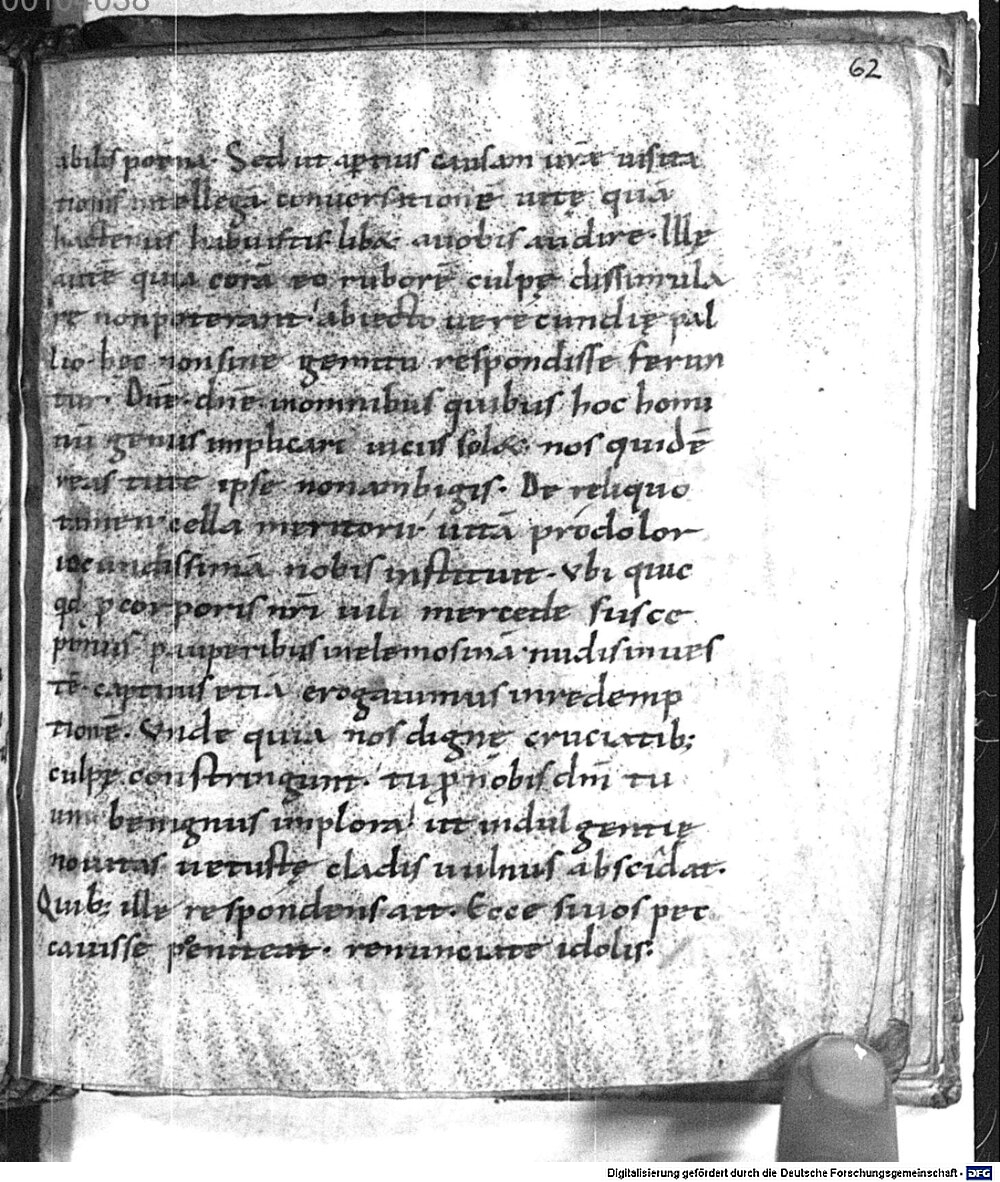 00104038
62
abilis poena. Sed ut aptius causam uræ uisita
tionis intellegā conuersationē uitę quā
hactenus habuistis lib& auobis audire. Illę
autē quia corā eo ruborē culpę dissimula
re nonpoterant abiecto uerecundię pal
lio. hęc nonsine gemitu respondisse ferun
tur. Dñe. dñe. inomnibus quibus hoc homi
nū genus implicari uicus sol&. nos quidē
reas tute ipse nonambigis. De reliquo
tamen cella meritoriū uitā prodolor
iocundissimā nobis instituit. Vbi quic
qd p corporis nr̄i uili mercede susce
pimus pauperibus inelemosinā. nudis inues
tē. captiuis etiā erogauimus inredemp
tionē. Vnde quia nos dignę cruciatib;
culpę constringunt. tu p nobis dnī tu
um benignus implora. ut indulgentię
nouitas uetustę cladis uulnus abscidat.
Quib; ille respondens ait. Ecce siuos pec
cauisse peniteat. renunciate idolis.
Digitalisierung gefördert durch die Deutsche Forschungsgemeinschaft - DFG